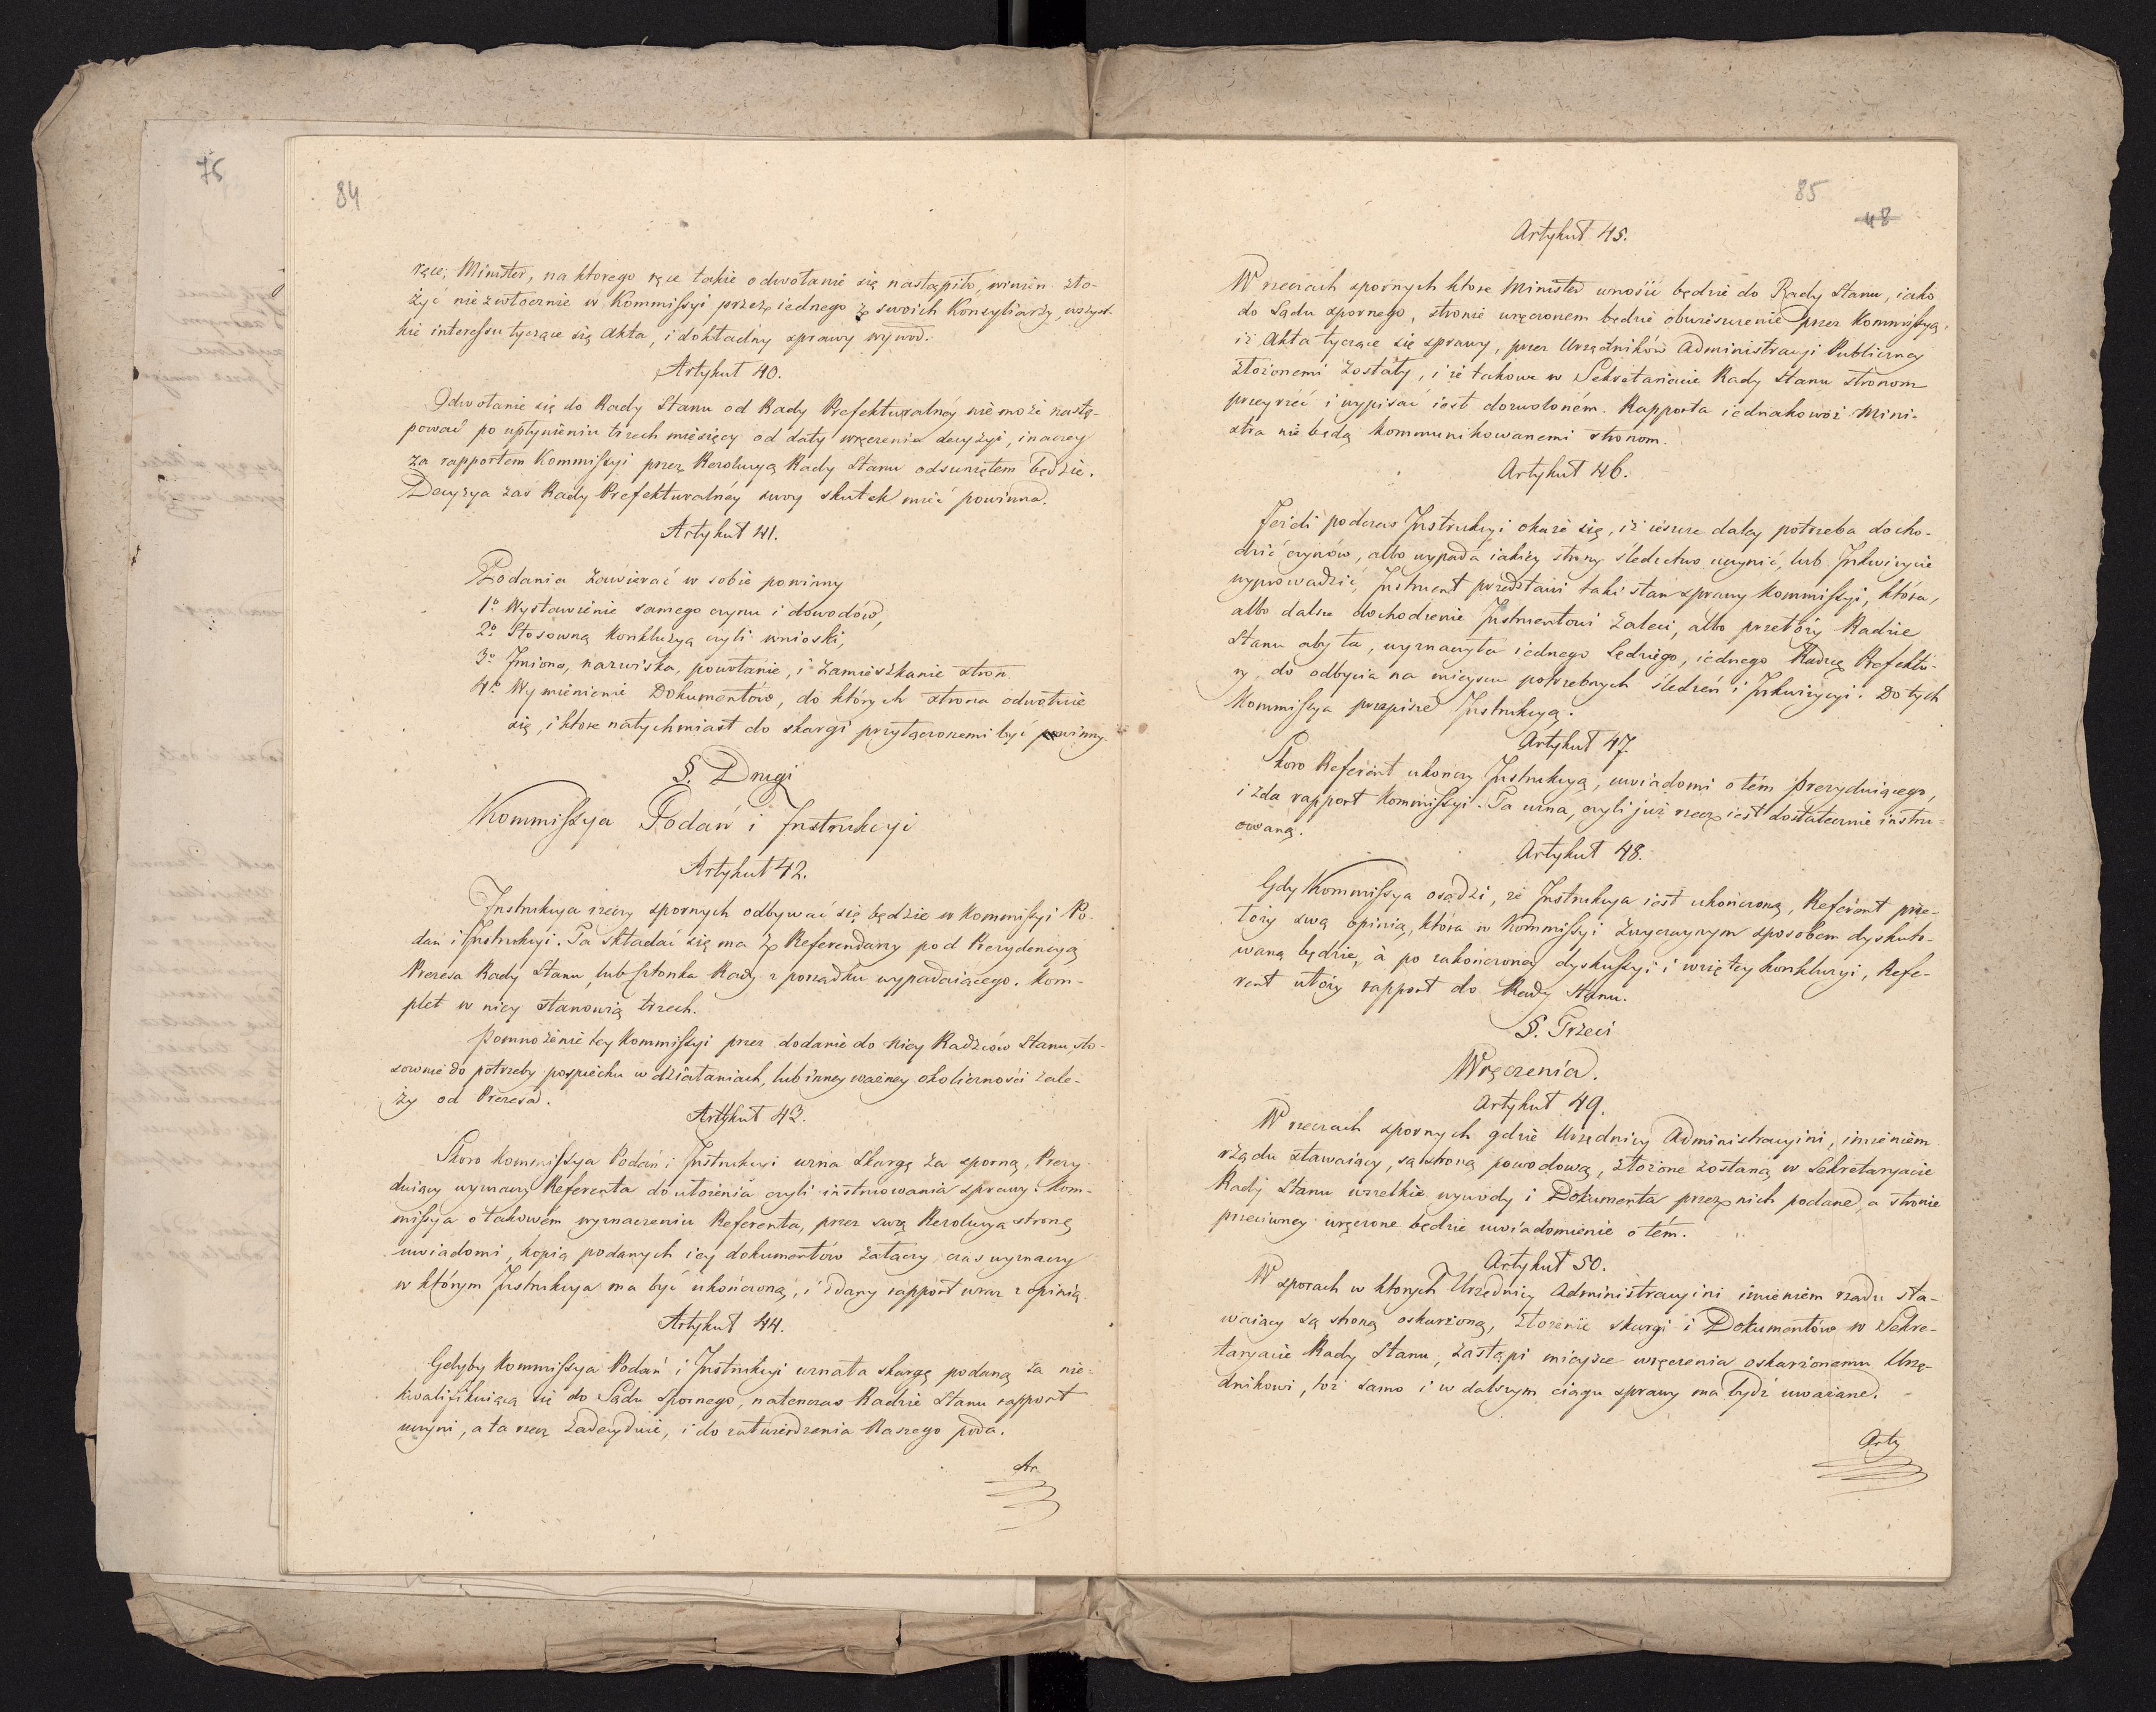 76
84
ręce; Minister, na ktorego ręce takie odwołanie się nastąpiło, winien zło-
żyć niezwłocznie w Kommissyi przez iednego z swoich Konsyliarzy, wszyst-
kie interessu tyczące się Akta, i dokładny sprawy wywod.
Artykuł 40.
Odwołanie się do Rady Stanu od Rady Prefekturalnéy nie może nastę-
pować po upłynieniu trzech miesięcy od daty wręczenia decyzyi, inaczey
za rapportem Kommissyi przez Rezolucyą Rady Stanu odsuniętem będzie.
Decyzya zaś Rady Prefekturalnéy swoy skutek mieć powinna.
Artykuł 41.
Podania zawierać w sobie powinny
1º Wystawienie samego czynu i dowodów,
2º Stosowną Konkluzyą czyli wnioski,
3º Jmiona, nazwiska, powołanie, i zamieszkanie stron.
4º Wymienienie Dokumentów, do których strona odwołuie
się, i ktore natychmiast do skargi przyłączonemi być powinny.
§. Drugi
Kommissya Podań i Jnstrukcyi
Artykuł 42.
Jnstrukcya rzeczy spornych odbywać się będzie w Kommissyi Po-
dań i Jnstrukcyi. Ta składać się ma z Referendarzy pod Prezydencyą
Prezesa Rady Stanu, lub Członka Rady z porządku wypadaiącego. Kom-
plet w niey stanowią trzech.
Pomnożenie tey Kommissyi przez dodanie do niey Radzców Stanu, sto-
sownie do potrzeby pospiechu w działaniach, lub inney ważney okoliczności zale-
ży od Prezesa.
Artykuł 43.
Skoro Kommissya Podań i Jnstrukcyi uzna skargę za sporną, Prezy-
duiący wyznaczy Referenta do ułożenia czyli instruowania sprawy. Kom-
missya o takowém wyznaczeniu Referenta, przez swą Rezolucyą stronę
uwiadomi, kopią podanych iey dokumentów załączy, czas wyznaczy
w którym Jnstrukcya ma być ukończoną, i zdany rapport wraz z opinią.
Artykuł 44.
Gdyby Kommissya Podań i Jnstrukcyi uznała skargę podaną za nie-
kwalifikuiącą się do Sądu spornego, natenczas Radzie Stanu rapport
uczyni, a ta rzecz zadecyduie, i do zatwierdzenia Naszego poda.
Ar
85
48
Artykuł 45.
W rzeczach spornych ktore Minister wnosić będzie do Rady Stanu, iako
do Sądu spornego, stronie wręczonem będzie obwieszczenie przez Kommissyą,
iż Akta tyczące się sprawy, przez Urzędników Administracyi Publiczney
złożonemi zostały, i że takowe w Sekretariacie Rady Stanu stronom
przeyrzeć i wypisać iest dozwoloném. Rapporta iednakowoż Mini-
stra nie będą kommunikowanemi stronom.
Artykuł 46.
Jeżeli podczas Jnstrukcyi okaże się, iż ieszcze daley potrzeba docho-
dzić czynów, albo wypada iakiey strony śledztwo uczynić, lub Jnkwizycie
wyprowadzić, Jnstruent przedstawi taki stan sprawy Kommissyi, która,
albo dalsze dochodzenie Jnstruentowi zaleci, albo przełoży Radzie
Stanu aby ta, wyznaczyła iednego Sędziego, iednego Radzcę Prefektu-
ry, do odbycia na mieyscu potrzebnych śledzeń i Jnkwizycyi. Do tych
Kommissya przepisze Jnstrukcyą.
Artykuł 47.
Skoro Referent ukończy Jnstrukcyą, uwiadomi o tém Prezyduiącego,
i zda rapport Kommissyi. Ta uzna, czyli już rzecz iest dostatecznie instru-
owaną.
Artykuł 48.
Gdy Kommissya osądzi, że Jnstrukcya iest ukończoną, Referent prze-
łoży swą opinią, która w Kommissyi zwyczaynym sposobem dyskuto-
waną będzie, à po zakończoney dyskussyi i wziętey konkluzyi, Refe-
rent ułoży rapport do Rady Stanu.
§. Trzeci
Wręczenia.
Artykuł 49.
W rzeczach spornych gdzie Urzędnicy Administracyini, imieniem
rządu stawaiący, są stroną powodową, złożone zostaną w Sekretaryacie
Rady Stanu wszelkie wywody i Dokumenta przez nich podane, a stronie
przeciwney wręczone będzie uwiadomienie o tém.
Artykuł 50.
W sporach w ktorych Urzędnicy Administracyini imieniem rządu sta-
waiący są stroną oskarżoną, złożenie skargi i Dokumentów w Sekre-
taryacie Rady Stanu, zastąpi mieysce wręczenia oskarżonemu Urzę-
dnikowi, toż samo i w dalszym ciągu sprawy ma bydź uważane.
Arty